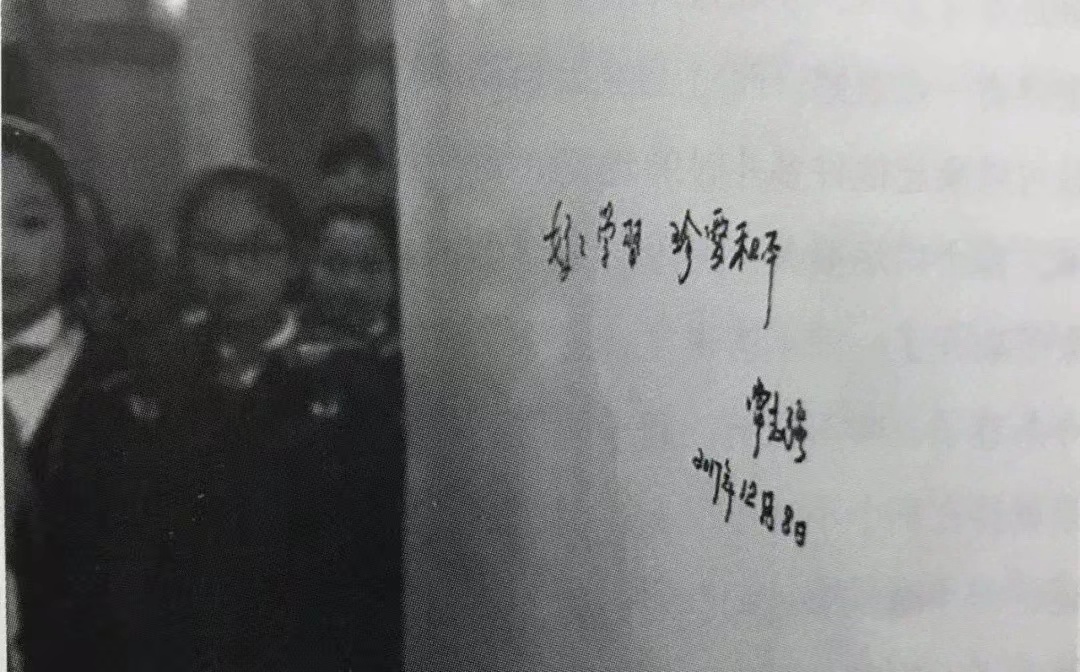 好〻学習 珍爱和平
常志强
2017年12月8日